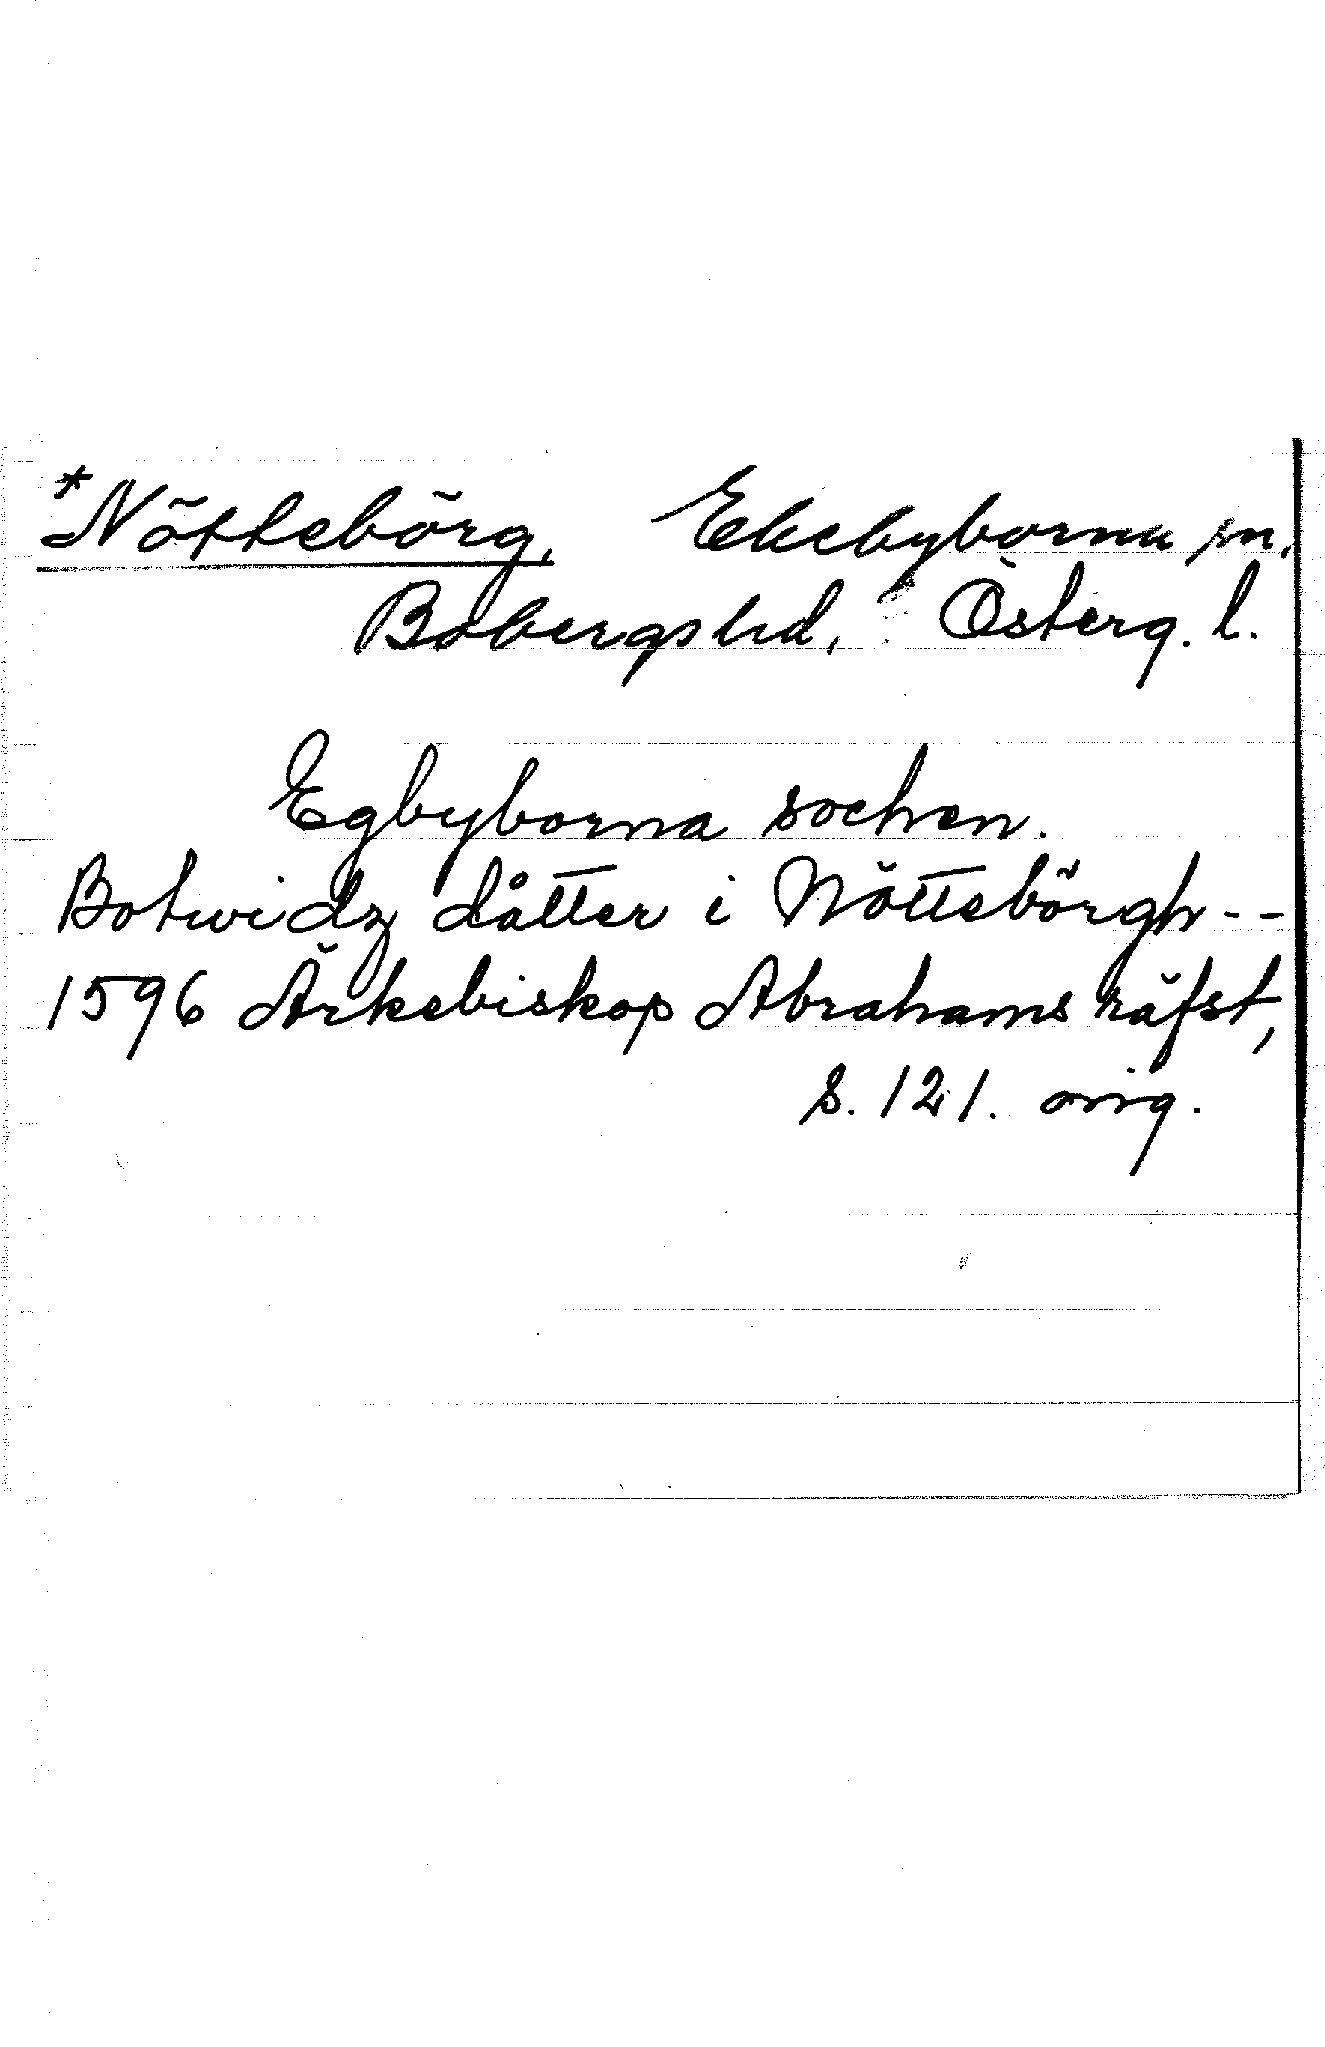 *Nöttebörg, Ekebyborna sn,
Bobergs hd, Österg. l.
Egbyborna sochen.
Botwidz dåtter i Nöttebörgh--
1596 Ärkebiskop Abrahams räfst,
s. 121. orig.